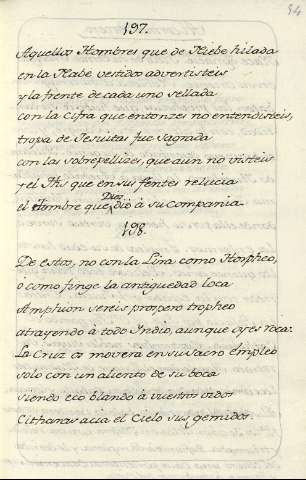 94
197.
Aquellos Hombres que de Niebe hilada
en la Nabe vestidos advertisteis
y la frente de cada uno sellada
con la Cifra que entonzes no entendisteis,
tropa de Jesuitas fue sagrada
con las sobrepellizes, que aun no visteis
y el Jhs que en sus frentes relucia
el Nombre que Dios dió à su Compania.
198.
De estos, no con la Lira como Horpheo,
ò como finge la antiguedad loca
Amphion sereis propero tropheo
atrayendo à todo Indio, aunque oyes roca:
La Cruz os movera en su sacro Empleo
solo con un aliento de su boca
siendo eco blando à vuestros oidos
Citharas acia el Cielo sus gemidos.